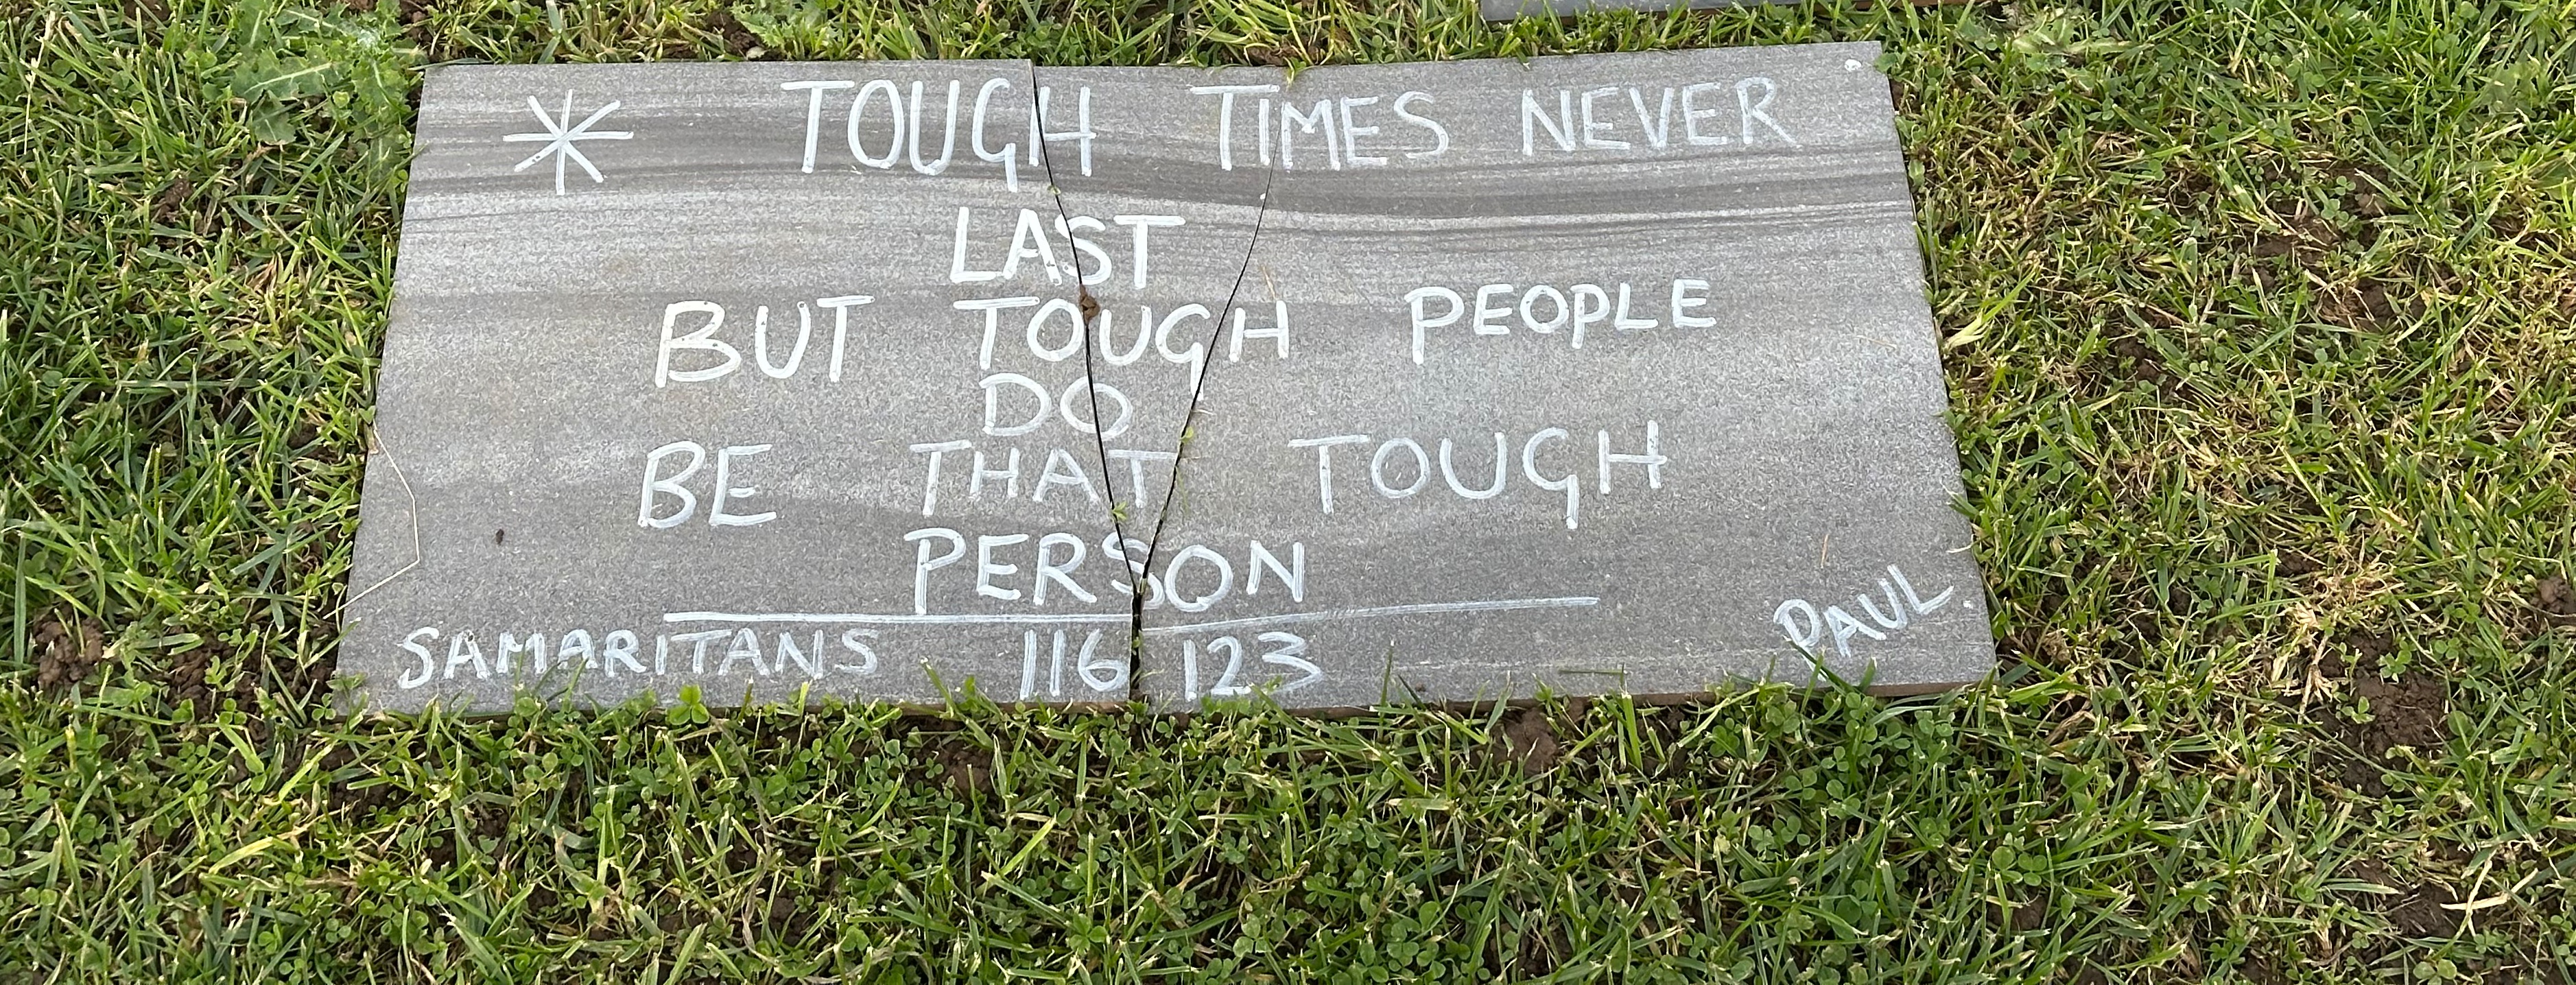 * TOUGH TIMES NEVER
LAST
BUT TOUGH PEOPLE
DO
BE THAT TOUGH
PERSON
SAMARITANS 116 123
PAUL